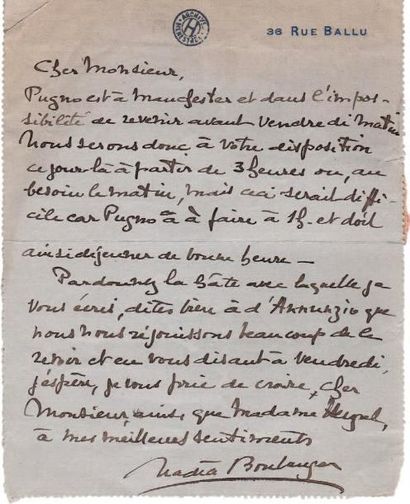 36 RUE BALLU
Cher Monsieur,
Pugno est à Manchester et dans l'impos-
sibilité de revenir avant vendredi matin
Nous serons donc à votre disposition
ce jour là à partir de 3 heures ou, au
besoin le matin, mais ceci serait diffi-
cile car Pugno a à faire à 1h. et doit
ainsi déjeuner de bonne heure —
Pardonnez la hâte avec laquelle je
vous écris, dites bien à d'Annunzio que
nous nous réjouissons beaucoup de le
revoir et en vous disant à vendredi,
j'espère, je vous prie de croire, cher
Monsieur, ainsi que Madame
à mes meilleurs sentiments
Nadia Boulanger